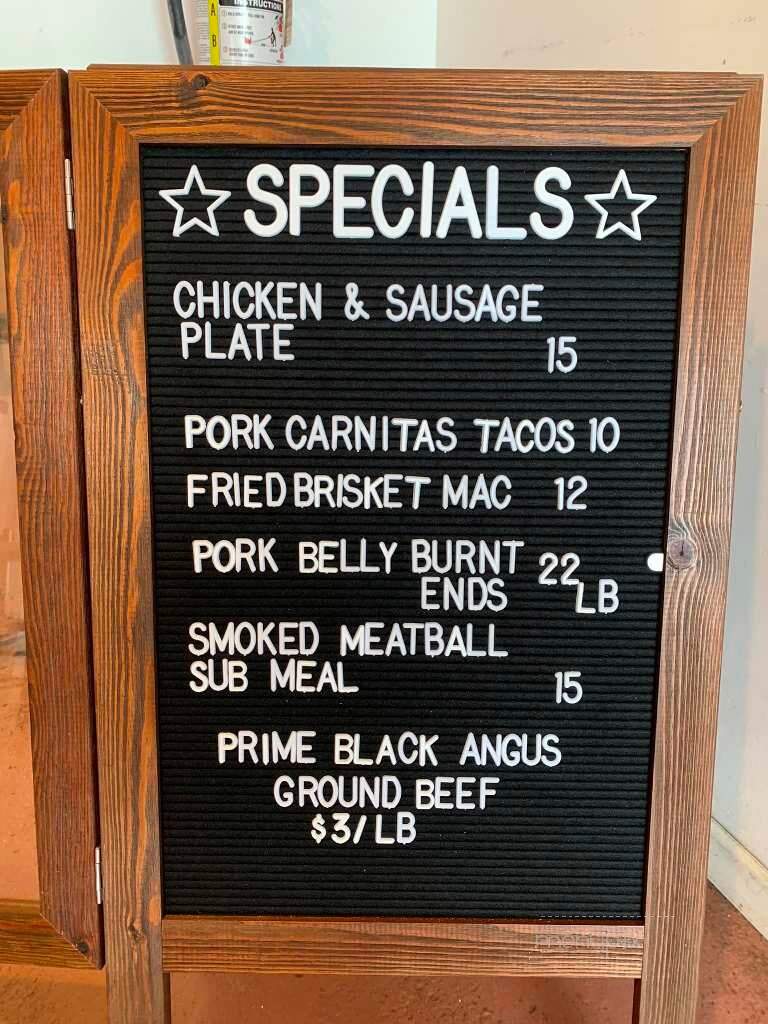 INSTRUCTIONS
A
B
☆ SPECIALS ☆
CHICKEN & SAUSAGE
PLATE 15
PORK CARNITAS TACOS 10
FRIED BRISKET MAC 12
PORK BELLY BURNT 22
ENDS LB
SMOKED MEATBALL
SUB MEAL 15
PRIME BLACK ANGUS
GROUND BEEF
$3/LB